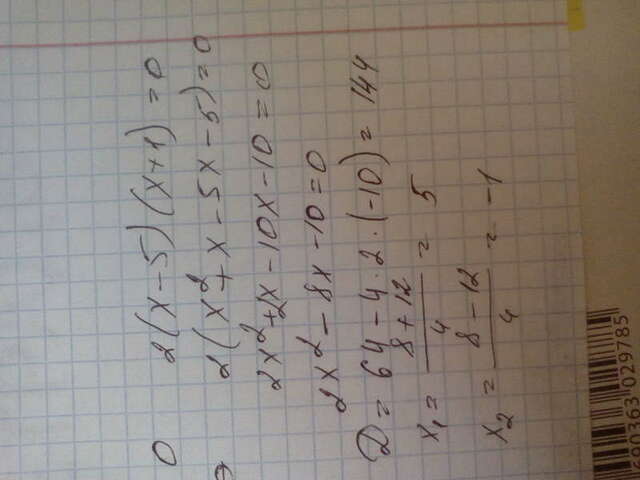 0 2(x-5)(x+1)=0
2(x²+x-5x-5)=0
2x²+2x-10x-10=0
2x²-8x-10=0
D=64-4·2·(-10)=144
x₁=(8+12)/4=5
x₂=(8-12)/4=-1
690363 029785